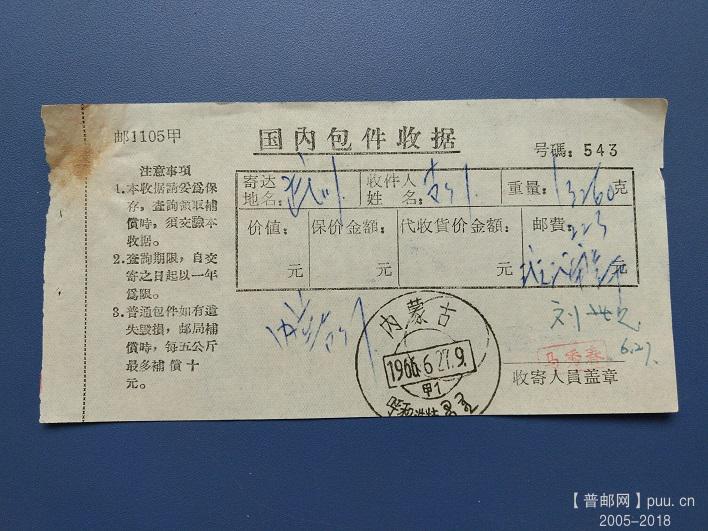 邮1105甲
国内包件收据
号碼: 543
注意事項
1.本收据請妥爲保
存,查詢領取補
償時,須交驗本
收据。
2.查詢期限,自交
寄之日起以一年
爲限。
3.普通包件如有遺
失毀損,邮局補
償時,每五公斤
最多補償十
元。
寄达
地名:
收件人
姓名:
重量: 13260克
价值: 元
保价金額: 元
代收貨价金額: 元
邮費: 223
元
内蒙古
1966.6.27.9.
甲1
呼和浩特
刘
6.27
马秀森
收寄人員盖章
【普邮网】puu.cn
2005-2018